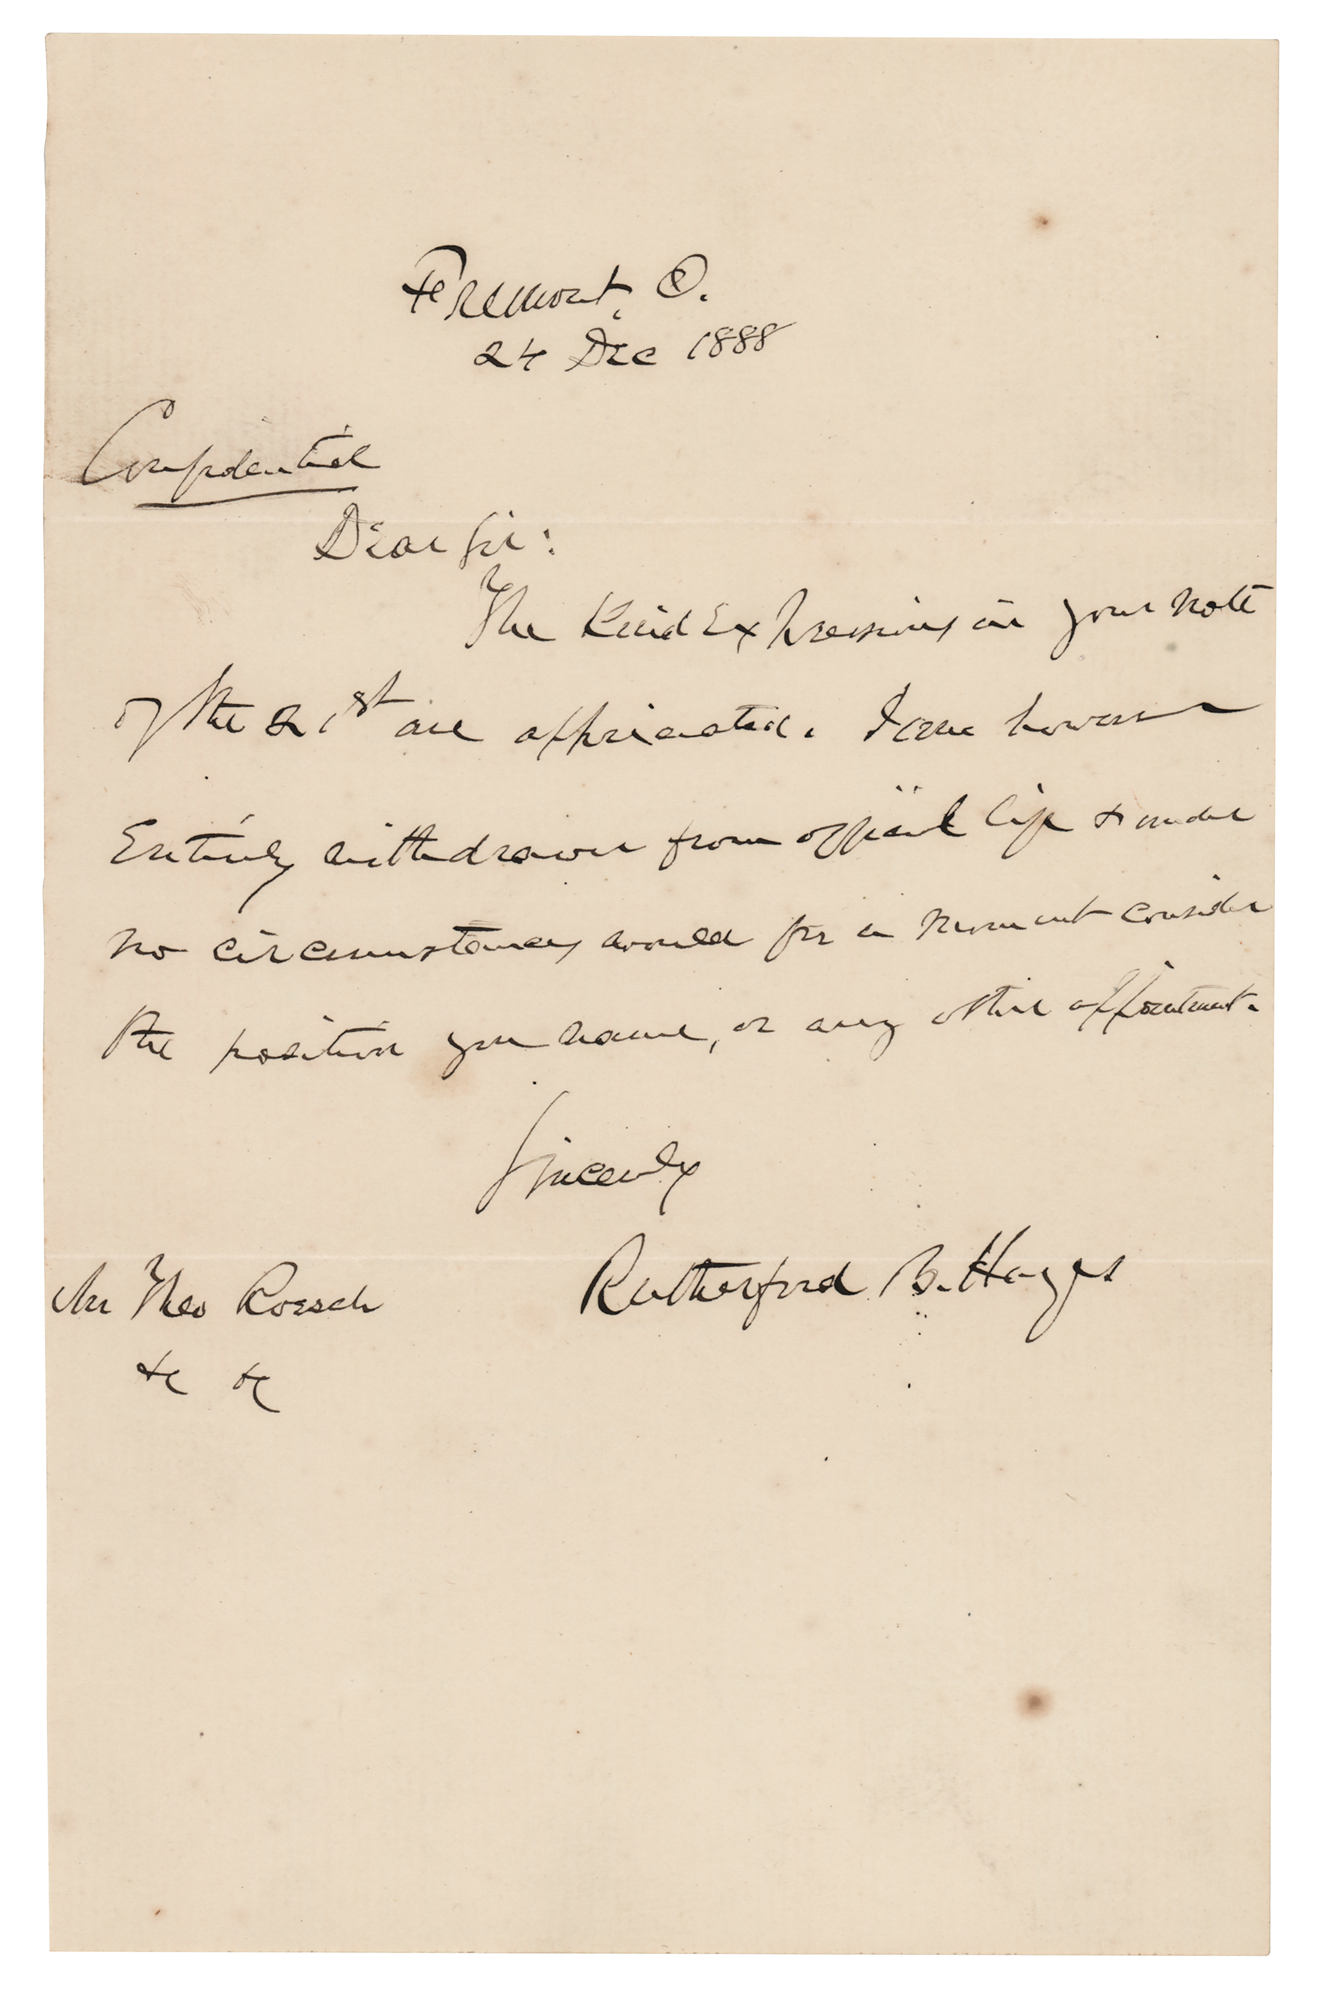 Fremont, O.
24 Dec 1888
Confidential
Dear Sir:
The Kind Expressions in your note
of the 21st are appreciated. I am however
Entirely withdrawn from official life & under
no circumstances would for a moment consider
the position you name, or any other appointment.
Sincerely
Rutherford B. Hayes
Mr Theo Roesch
&c &c